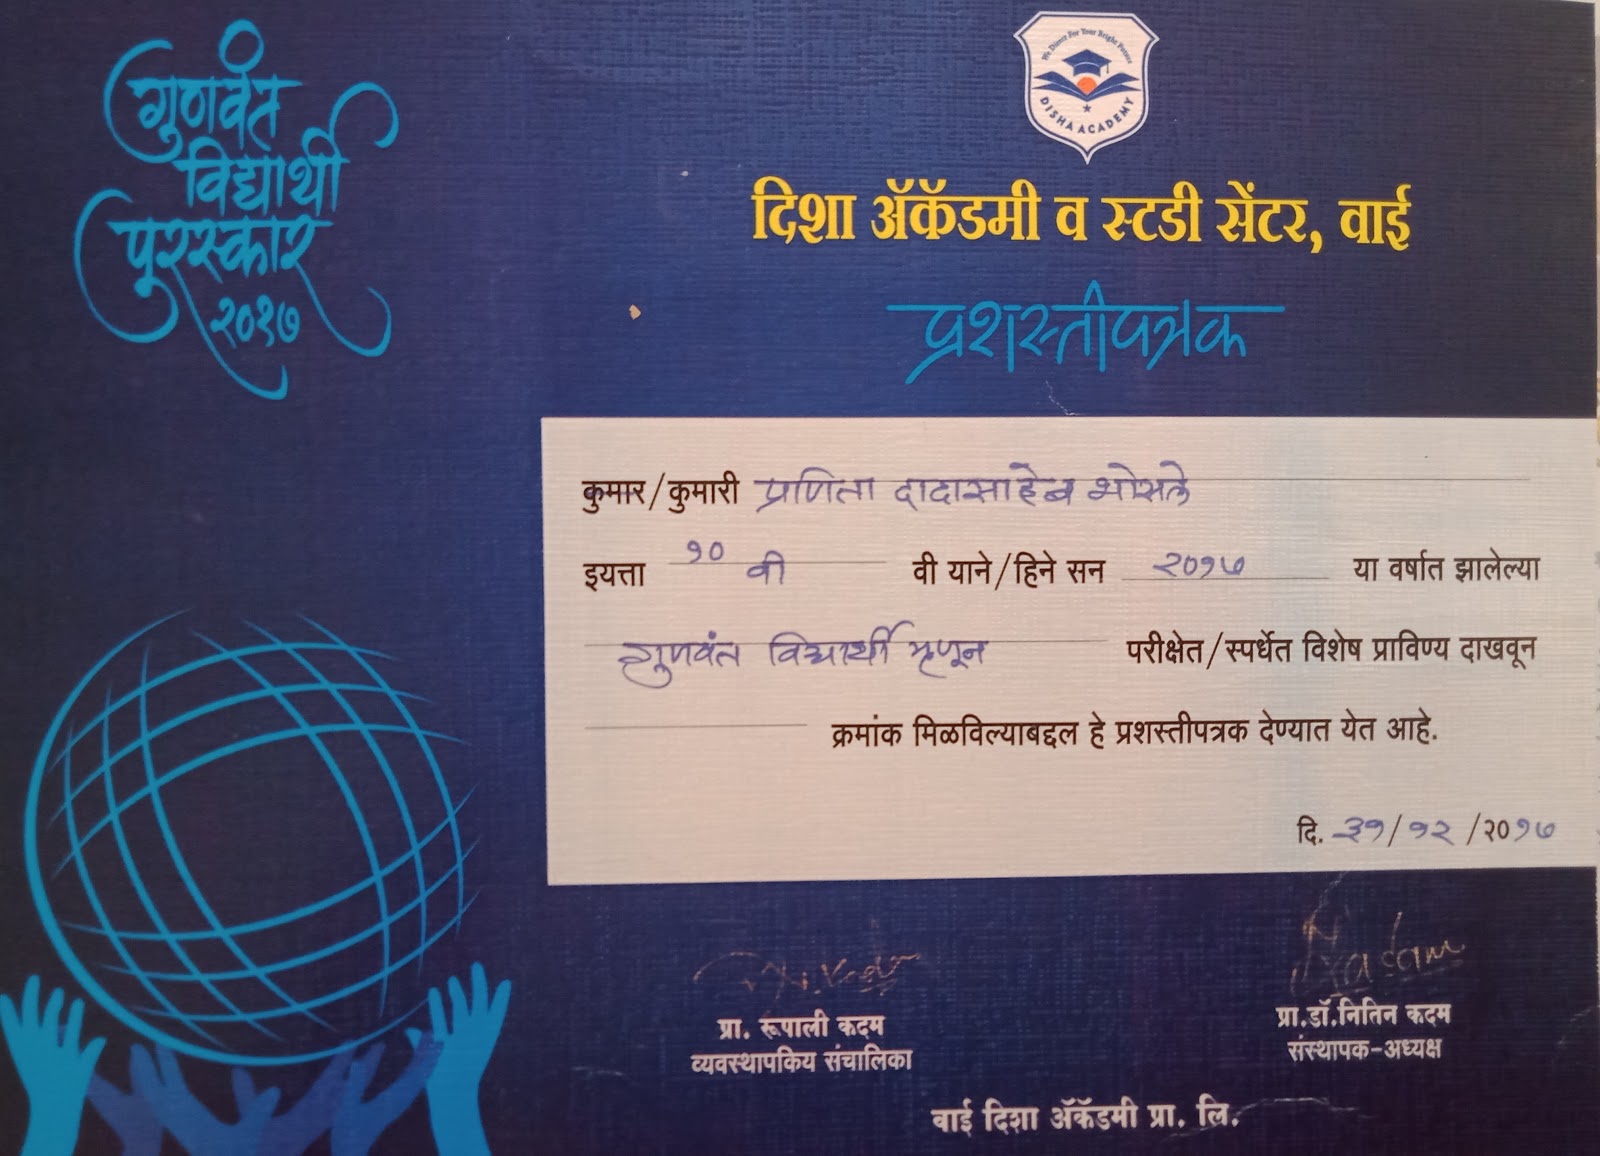 गुणवंत
विद्यार्थी
पुरस्कार
२०१७
We Direct For Your Bright Future
DISHA ACADEMY
दिशा ॲकॅडमी व स्टडी सेंटर, वाई
प्रशस्तीपत्रक
कुमार/कुमारी प्रणिता दादासाहेब भोसले
इयत्ता १० वी वी याने/हिने सन २०१७ या वर्षात झालेल्या
गुणवंत विद्यार्थी म्हणून परीक्षेत/स्पर्धेत विशेष प्राविण्य दाखवून
क्रमांक मिळविल्याबद्दल हे प्रशस्तीपत्रक देण्यात येत आहे.
दि. ३१/१२/२०१७
प्रा. रूपाली कदम
व्यवस्थापकिय संचालिका
प्रा.डॉ.नितिन कदम
संस्थापक-अध्यक्ष
वाई दिशा ॲकॅडमी प्रा. लि.